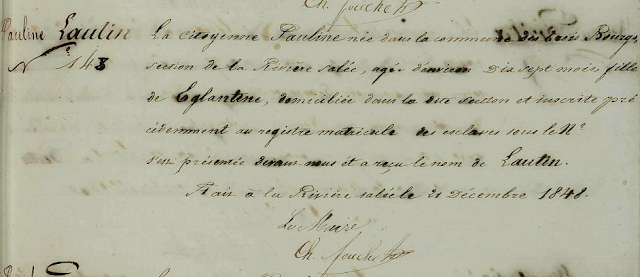 Pauline Lautin
N° 148
La citoyenne Pauline née dans la commune des trois Bourgs,
section de la Rivière salée, agée d'environ Dix sept mois, fille
de Eglantine, domiciliée dans la dite section et inscrite pré
cédemment au registre matricule des esclaves sous le N°
s'est présentée devant nous et a reçu le nom de Lautin.
Fait à la Rivière salée le 21 Décembre 1848.
Le Maire